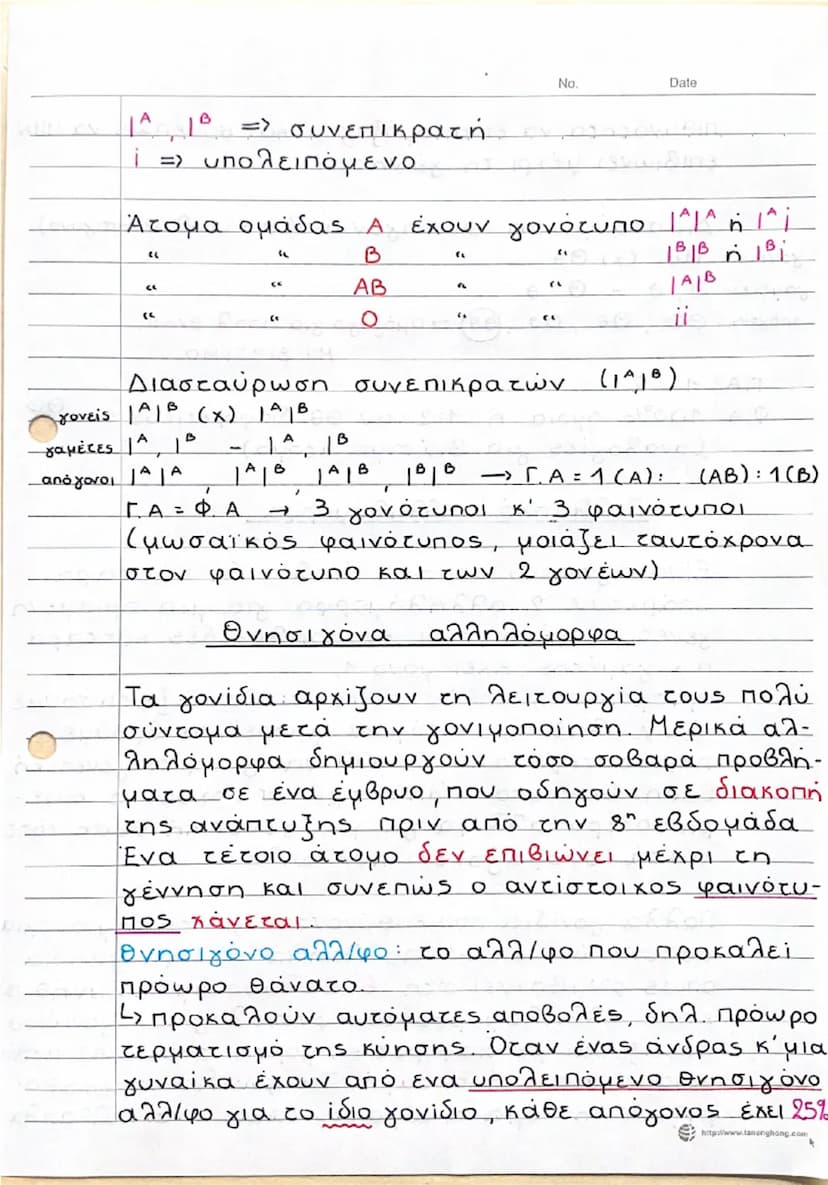 No. Date
Iᴬ, Iᴮ => συνεπικρατή
i => υπολειπόμενο
Άτομα ομάδας A έχουν γονότυπο IᴬIᴬ ή Iᴬi
“ “ B “ “ IᴮIᴮ ή Iᴮi
“ “ AB “ “ IᴬIᴮ
“ “ O “ “ ii
Διασταύρωση συνεπικρατών (Iᴬ, Iᴮ)
γονείς IᴬIᴮ (x) IᴬIᴮ
γαμέτες Iᴬ, Iᴮ - Iᴬ, Iᴮ
απόγονοι IᴬIᴬ, IᴬIᴮ, IᴬIᴮ, IᴮIᴮ → Γ.Α = 1 (A): (AB): 1(B)
Γ.Α = Φ.Α → 3 γονότυποι κ' 3 φαινότυποι
(μωσαϊκός φαινότυπος, μοιάζει ταυτόχρονα
στον φαινότυπο και των 2 γονέων)
Θνησιγόνα αλληλόμορφα
Τα γονίδια αρχίζουν τη λειτουργία τους πολύ
σύντομα μετά την γονιμοποίηση. Μερικά αλ-
ληλόμορφα δημιουργούν τόσο σοβαρά προβλή-
ματα σε ένα έμβρυο, που οδηγούν σε διακοπή
της ανάπτυξης πριν από την 8η εβδομάδα
Ένα τέτοιο άτομο δεν επιβιώνει μέχρι τη
γέννηση και συνεπώς ο αντίστοιχος φαινότυ-
πος χάνεται.
Θνησιγόνο αλλ/φο: το αλλ/φο που προκαλεί
πρόωρο θάνατο.
↳ προκαλούν αυτόματες αποβολές, δηλ. πρόωρο
τερματισμό της κύησης. Όταν ένας άνδρας κ' μια
γυναίκα έχουν από ένα υπολειπόμενο θνησιγόνο
αλλ/φο για το ίδιο γονίδιο, κάθε απόγονος έχει 25%
http://www.tanonghong.com